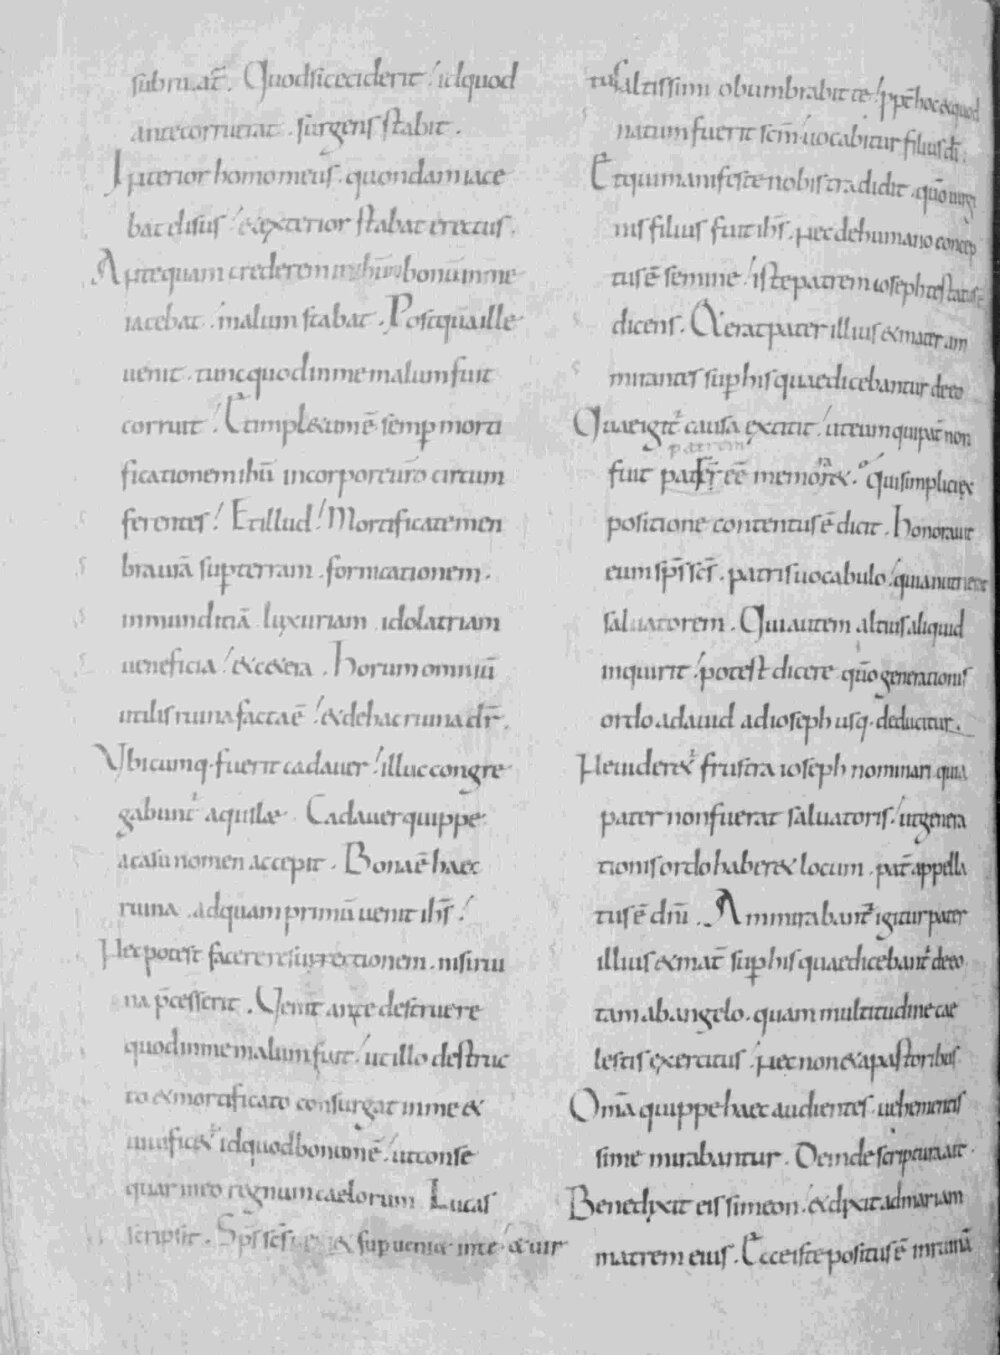 subruat. Quod si ceciderit id quod
ante corruerat. surgens stabit.
Interior homo meus. quondam iace
bat elisus / & exterior stabat erectus.
Antequam crederem in ihm bonum in me
iacebat. malum stabat. Postquam ille
uenit. tunc quod in me malum fuit
corruit / Et impl& um ē semp morti
ficationem ihū in corpore uro circum
ferentes / Et illud / Mortificate mem
bra uīa sup terram. fornicationem.
inmunditiā luxuriam idolatriam
ueneficia / & c&era. Horum omniū
utilis ruina facta ē / & de hac ruina dr̄.
Vbicumq. fuerit cadauer / illuc congre
gabunt aquilae. Cadauer quippe
a casu nomen accepit. Bona ē haec
ruina. ad quam primū uenit ihs /
Nec potest facere resurrectionem. nisi rui
na p̄cesserit. Venit ante destruere
quod in me malum fuit / ut illo destruc
to & mortificato consurgat in me &
uiuific&ur id quod bonum ē / ut conse
quar in eo regnum caelorum Lucas
scripsit. Sps scs superueni& in te. & uir
tus altissimi obumbrabit te / ppt hoc & quod
natum fuerit scm uocabitur filius di.
Et qui manifeste nobis tradidit. quō uirgi
nis filius fuit ihs. nec de humano concep
tus ē semine / iste patrem ioseph testatus ē
dicens. Et erat pater illius & mater am
mirantes sup his quae dicebantur de eo
Quae igit causa extitit / ut eum qui pat non
fuit patrem ēē memorar&. Qui simplici ex
positione contentus ē dicit. Honorauit
eum sps scs. patris uocabulo / quia nutrierat
saluatorem. Qui autem altius aliquid
inquirit / potest dicere quō generationis
ordo a dauid ad ioseph usq. deducitur.
Ne uider&ur frustra ioseph nominari quia
pater non fuerat saluatoris / ut genera
tionis ordo haber& locum. pat appella
tus ē dni. Ammirabant igitur pater
illius & mat sup his quae dicebant de eo
tam ab angelo. quam multitudine cae
lestis exercitus / nec non & a pastoribus
Omā quippe haec audientes. uehementis
sime mirabantur. Deinde scriptura ait.
Benedixit eis simeon. & dixit ad mariam
matrem eius. Ecce iste positus ē in ruinā